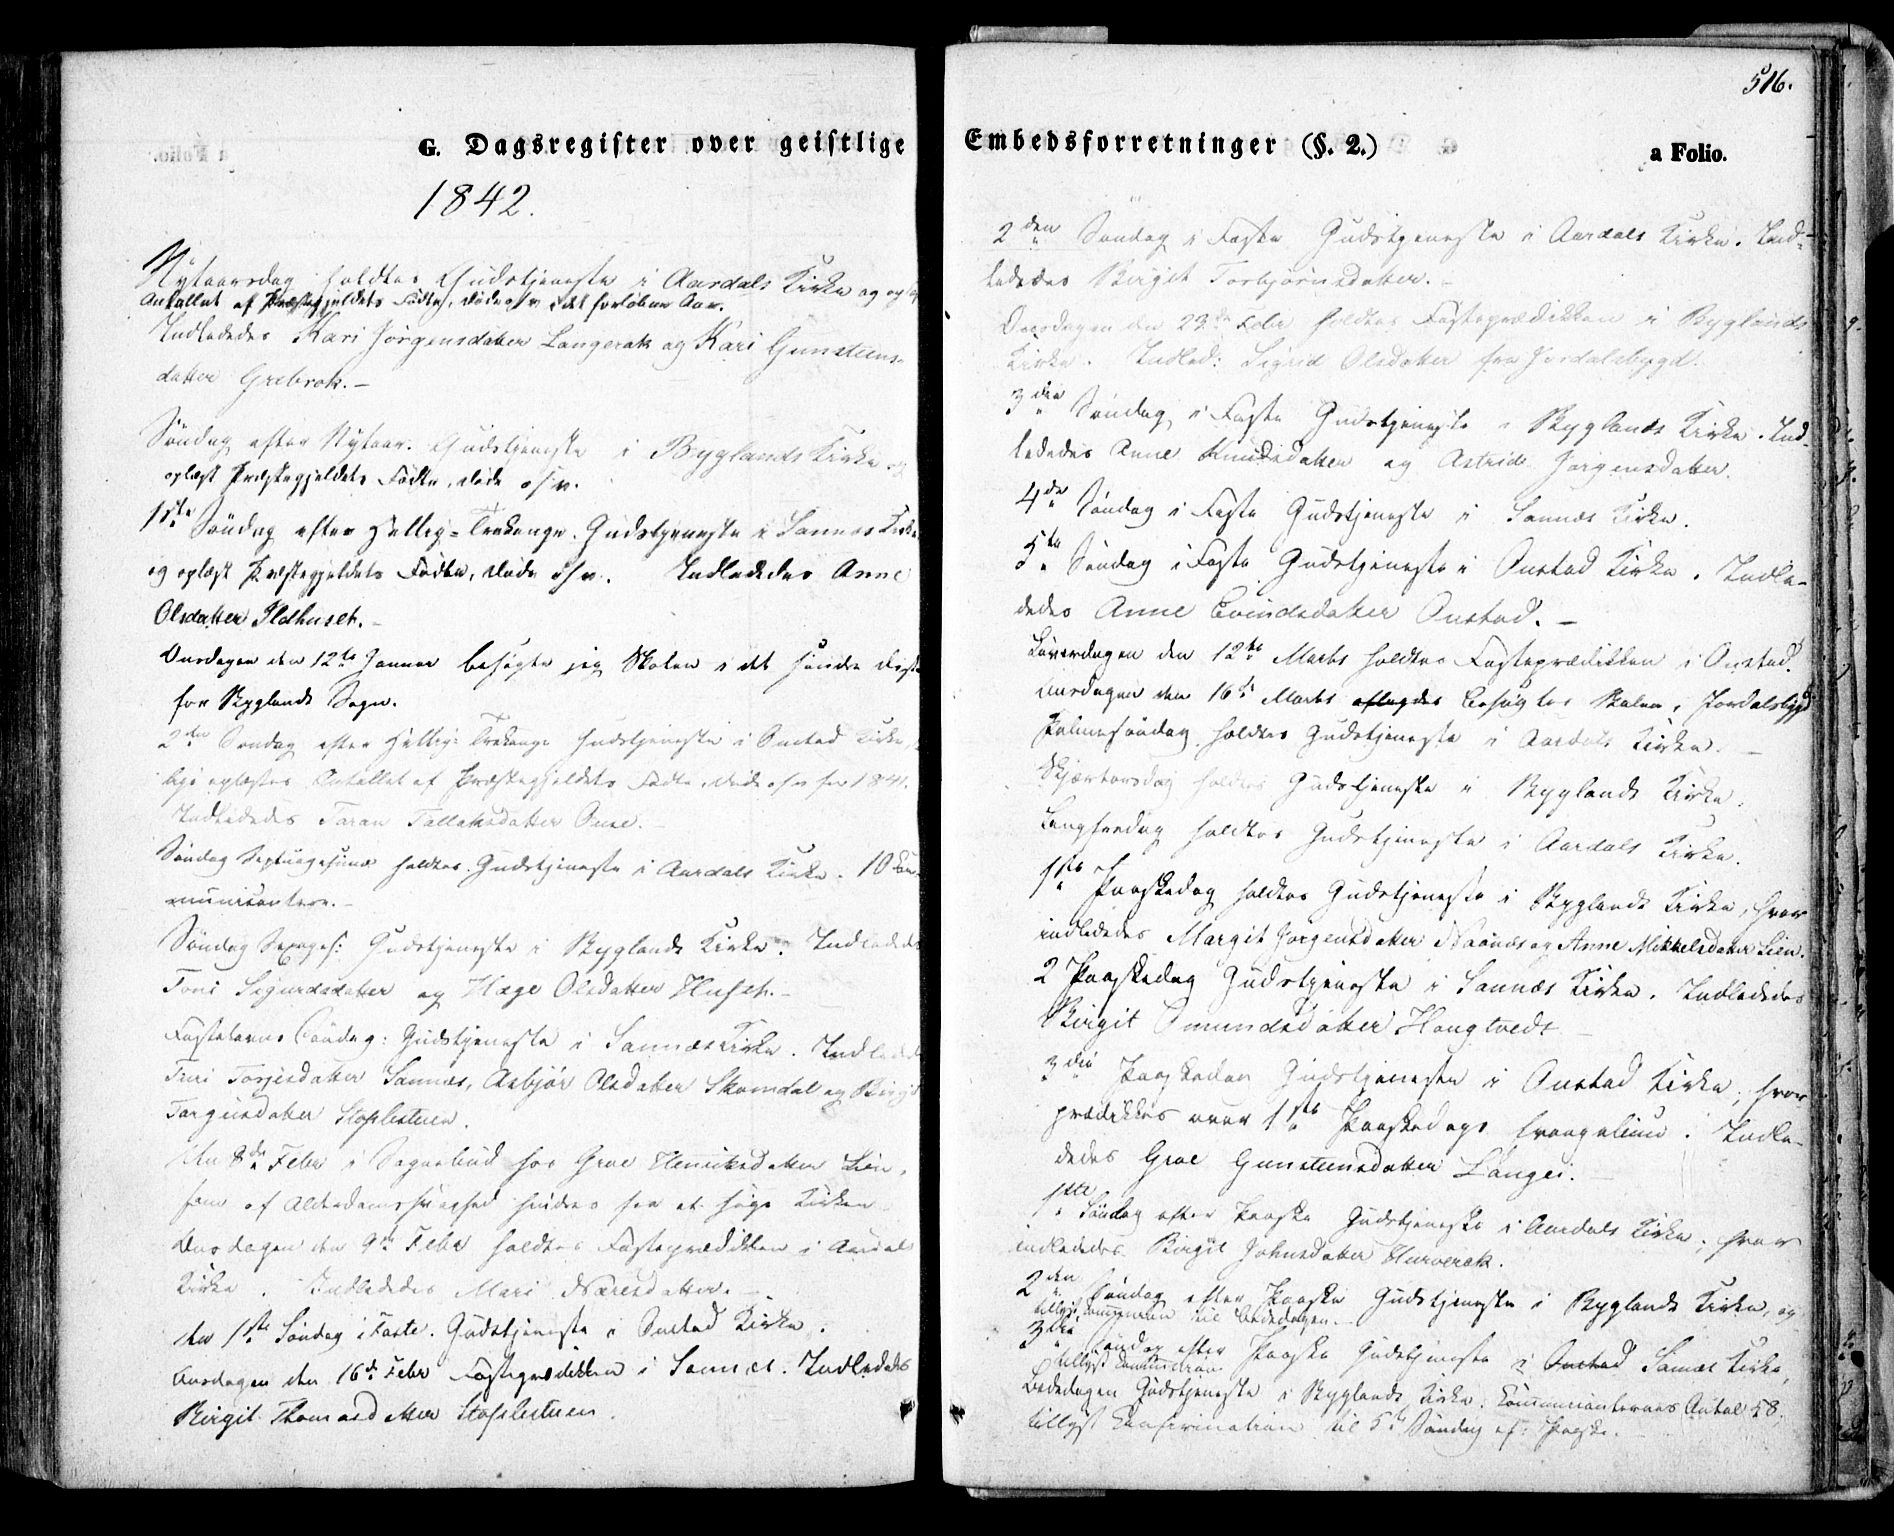 G. Dagsregister over geistlige
1842.
Nytaarsdag holdtes Gudstjeneste i Aardals Kirke og opl
Antallet af Præstegjeldets Fødte, døde o s v i det forløbne Aar.
Indlededes Kari Jørgensdatter Langerak og Kari Gunsteens-
datter Grebrok. –
Søndag efter Nytaar. Gudstjeneste i Byglands Kirke og
oplæst Præstegjeldets Fødte, døde o s v.
1ste Søndag efter Hellig-Trekonge. Gudstjeneste i Sannes Kirke
og oplæst Præstegjeldets Fødte, døde o s v. Indlededes Anne
Olsdatter Ildhuset. –
Onsdagen den 12te Januar besøgte jeg Skolen i det søndre
for Byglands Sogn.
2den Søndag efter Hellig-Trekonge Gudstjeneste i Onstad Kirke,
oplæstes Antallet af Præstegjeldets Fødte, døde o s v for 1841.
Indlededes Taran Tallaksdatter Ouse. –
Søndag Septuagesima holdtes Gudstjeneste i Aardals Kirke. 10 Com-
municantere. –
Søndag Sexages: Gudstjeneste i Byglands Kirke. Indledede
Toni Sigurdsdatter og Hæge Olsdatter Huset. –
Fastelavns Søndag: Gudstjeneste i Sannes Kirke. Indledede
Turi Torjesdatter Sannes, Asbjør Olsdatter Skomdal og Birgit
Targusdatter Stoslestuen.
den 8de Febr i Sognebud hos Groe Henriksdatter Lien,
som af Alderdomssvaghed hindres for at søge Kirken
Onsdagen den 9de Febr holdtes Fasteprædikken i Aardals
Kirke. Indlededes Mari Næresdatter. –
den 1ste Søndag i Faste. Gudstjeneste i Onstad Kirke.
Onsdagen den 16de Febr Fasteprædikken i Sannes. Indledede
Birgit Thomasdatter Stoslestuen.
516.
Embedsforretninger (§. 2.)
a Folio.
2den Søndag i Faste Gudstjeneste i Aardals Kirke. Ind-
lededes Birgit Torbjørnsdatter. –
Onsdagen den 23de Febr holdtes Fasteprædikken i Byglands
Kirke. Indled: Sigrid Olsdatter fra Jordalsbygd.
3die Søndag i Faste Gudstjeneste i Byglands Kirke. Ind-
lededes Anne Knudsdatter og Astrid Jørgensdatter.
4de Søndag i Faste Gudstjeneste i Sannes Kirke.
5te Søndag i Faste Gudstjeneste i Onstad Kirke. Indle-
dedes Anne Evindsdatter Onstad. –
Løverdagen den 12te Marts holdtes Fasteprædikken i Onstad.
Onsdagen den 16de Marts aflagdes besøgtes Skolen i Jordalsbygd
Palmesøndag holdtes Gudstjeneste i Aardals Kirke. –
Skjærtorsdag holdtes Gudstjeneste i Byglands Kirke.
Langfredag holdtes Gudstjeneste i Aardals Kirke.
1ste Paaskedag holdtes Gudstjeneste i Byglands Kirke, hvor
indlededes Margit Jørgensdatter Naanes og Anne Mikkelsdatter Lien.
2 Paaskedag Gudstjeneste i Sannes Kirke. Indledede
Birgit Omundsdatter Hougtvedt –
3die Paaskedag Gudstjeneste i Onstad Kirke, hvor
prædikkes over 1ste Paaskedags Evangelium. Indle-
dedes Groe Gunsteensdatter Langei. –
1ste Søndag efter Paaske Gudstjeneste i Aardals Kirke, hvor
indlededes Birgit Johnsdatter Hurverak.
2den Søndag efter Paaske Gudstjeneste i Byglands Kirke, og
tillyst Communion til Bededagen. –
3die Søndag efter Paaske Gudstjeneste i Onstad Sannes Kirke,
tillyst Communion
Bededagen Gudstjeneste i Byglands Kirke. Communicanternes Antal 58.
tillyst Confirmation til 5te Søndag ef: Paaske.